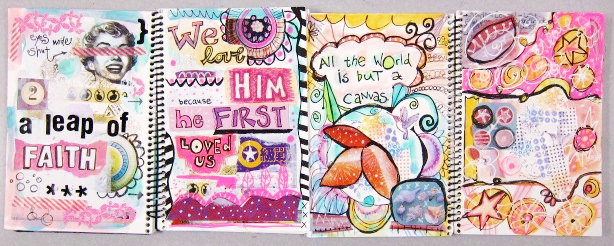 eyes wide
shut
2
a leap of
FAITH
We
love
HIM
because
he FIRST
LOVED
US
All the World
is but a
canvas